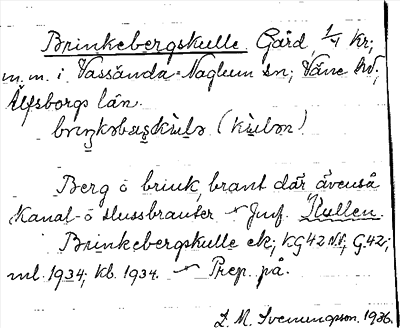 Brinkebergskulle Gård, 1/4 kr;
m.m. i Vassända-Naglum sn; Väne hd;
Älfsborgs län.
briŋkəbærskùlə (kùlən)
Berg o brink, brant där ävenså
kanal- o slussbranter – Jmf. Kullen.
Brinkebergskulle ek; KG 42 NV; G. 42;
ml. 1934, kb. 1934. – Prep. på.
L. M. Svenungsson. 1936.